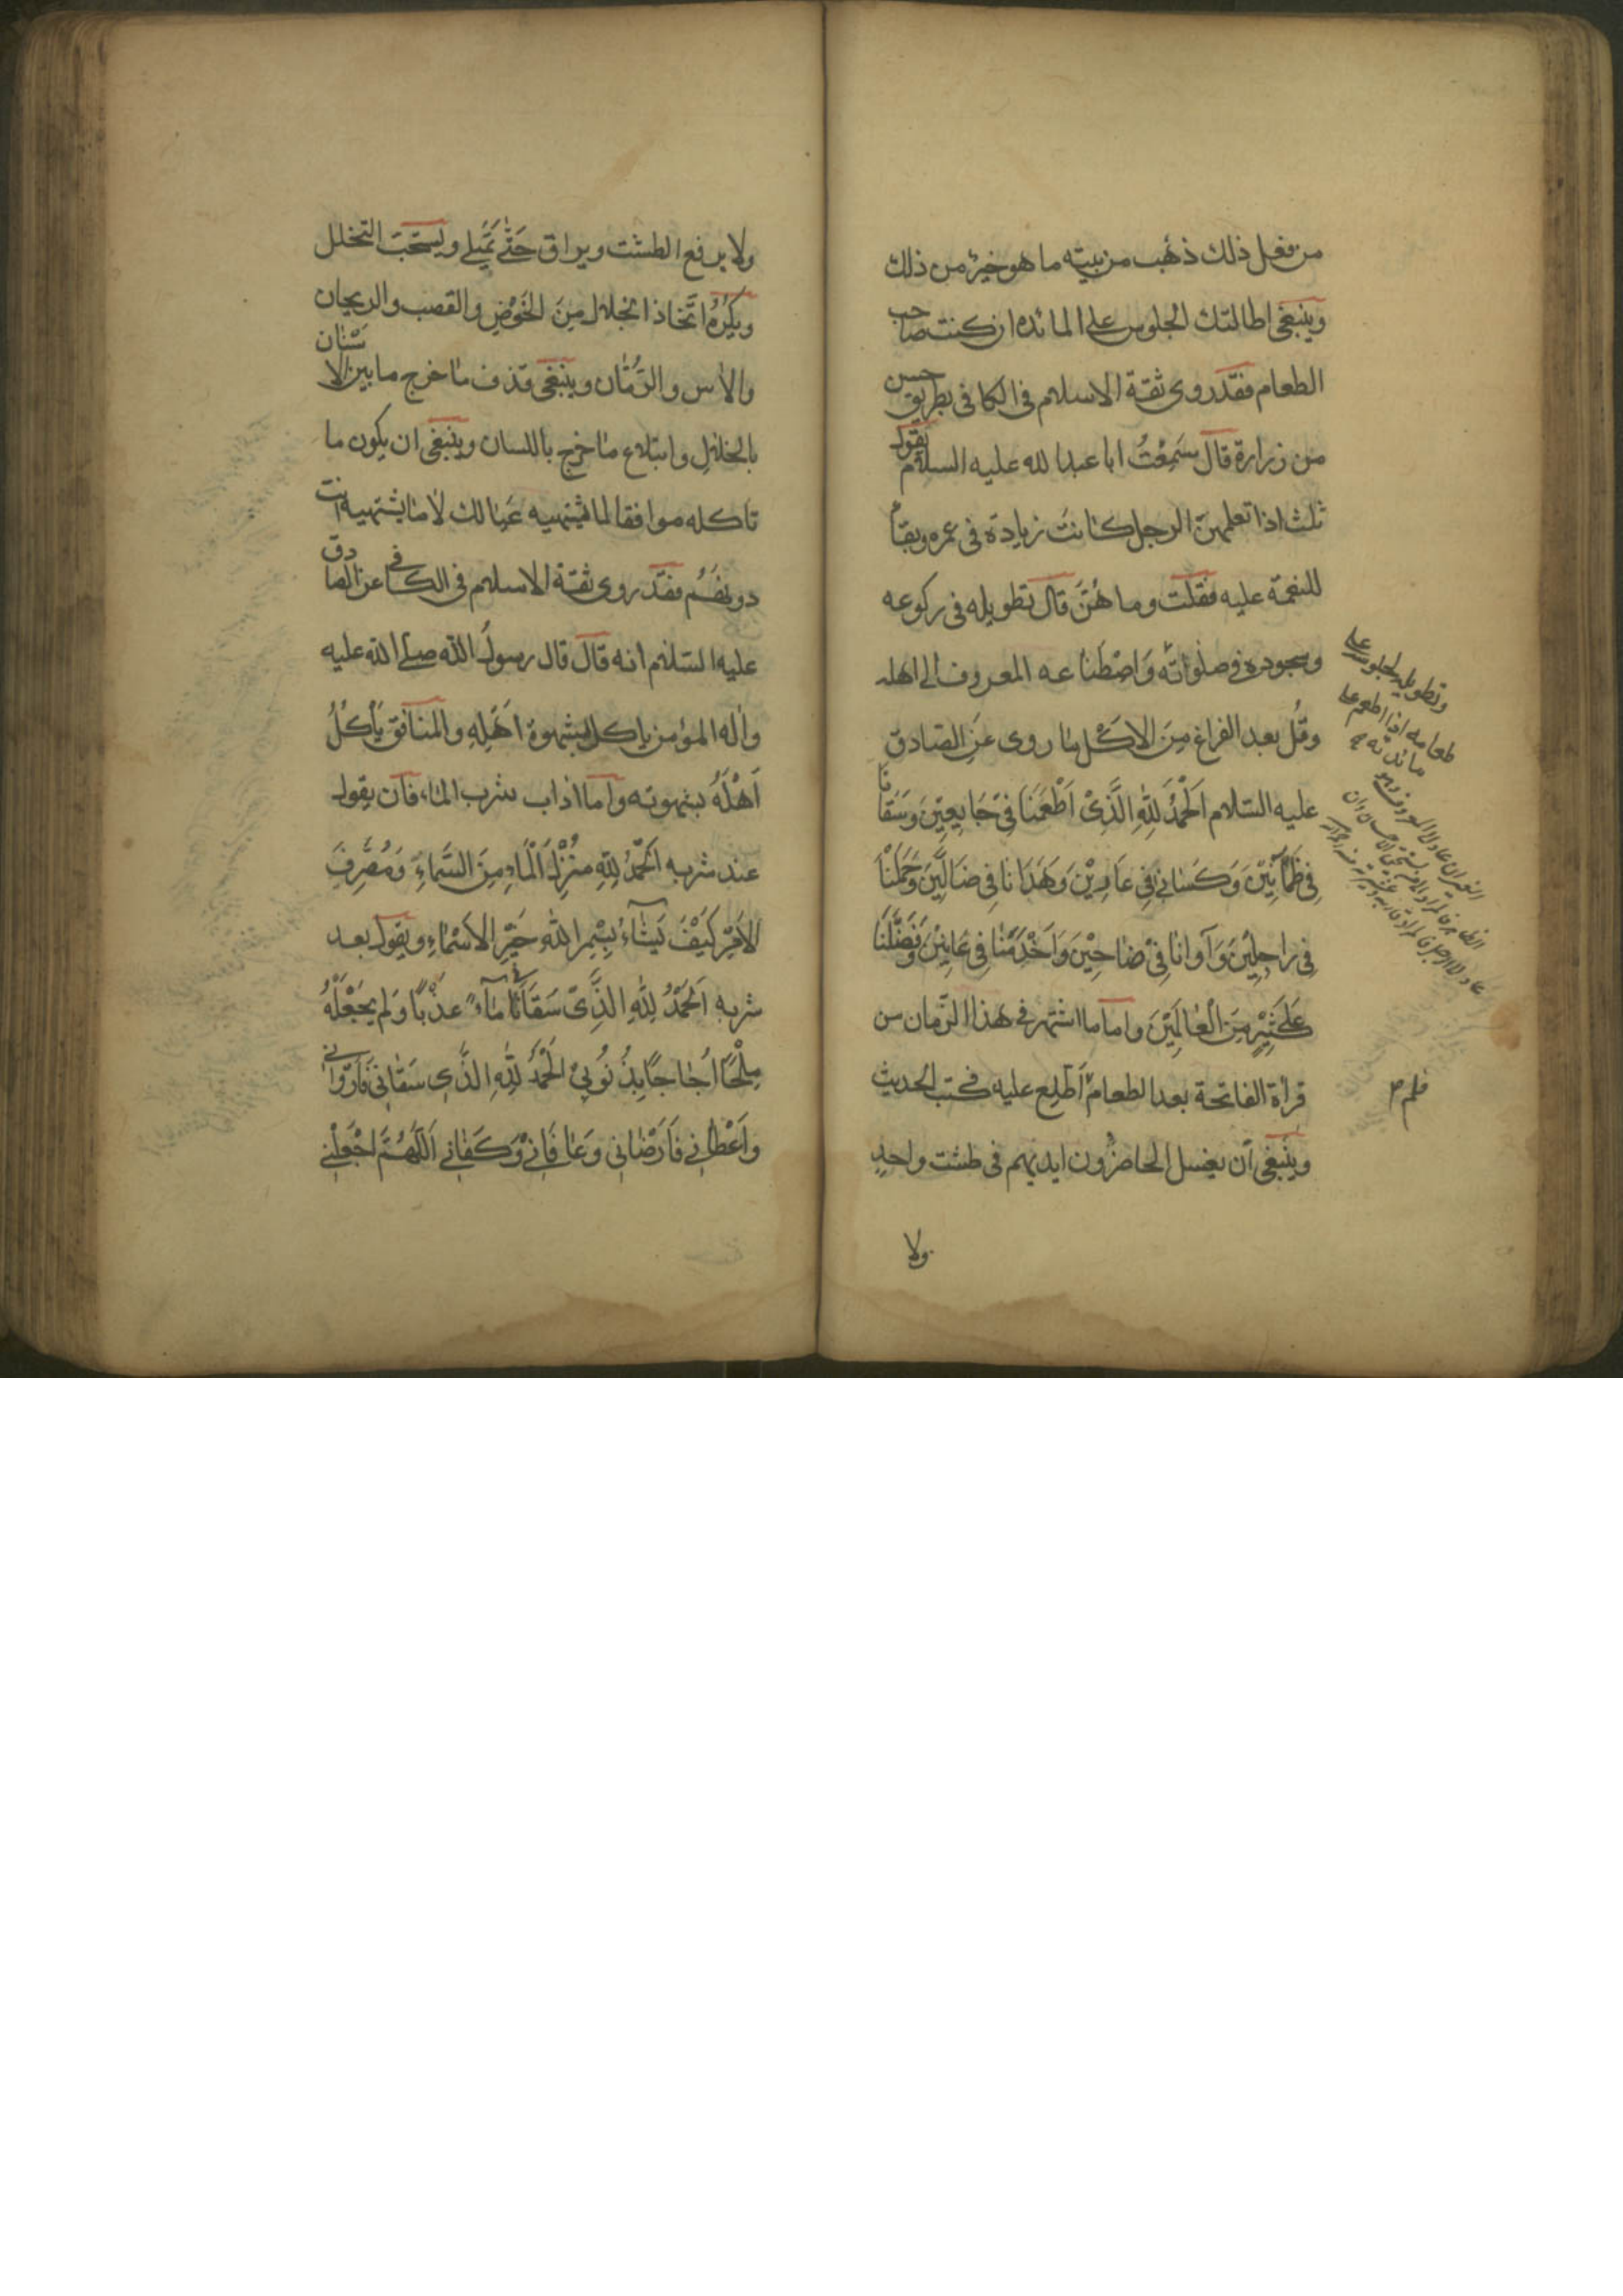 من فعل ذلك ذهب من بيته ما هو خير من ذلك
وينبغي اطالتك الجلوس على المائدة ان كنت صاحب
الطعام فقد روى ثقة الاسلام في الكافي بطريق حسن
من زرارة قال سَمِعْتُ ابا عبد الله عليه السلام يقول
ثلث اذا تعلمهن الرجل كانت زيادة في عمره وبقاء
للنعمة عليه فقلت وما هُنَّ قال تطويله في ركوعه
وسجوده في صلواته وَاصْطَناعه المعروف الى اهله
وقُل بعد الفراغ مِنَ الاكْل ما روى عَنِ الصادق
عليه السلام اَلْحَمْدُ لِلّٰهِ الَّذِىْ اَطْعَمَنَا فِىْ جَايِعِيْنَ وَسَقَانَا
فِى ظَمْآنِيْنَ وَكَسَانَا فِى عَارِيْنَ وَهَدَانَا فِى ضَالِّيْنَ وَحَمَلَنَا
فِى رَاجِلِيْنَ وَآوانا فِىْ ضَاحِيْنَ وَاَخْدَمَنَا فِى عَانِيْنَ وَفَضَّلَنَا
عَلىٰ كَثِيْرٍ مِنَ الْعَالَمِيْنَ واما ما اشتهر في هذا الزمان من
قراة الفاتحة بعد الطعام اَطّلِع عليه في كتب الحديث
وينبغي اَن يغسل الحاضرون ايديهم في طشت واحد
ولا
وتطويله لجلوسه على
طعامه اذا اطعم على
مائدته
فلم
ولا يرفع الطشت ويراق حَتّٰى يَمْتَلِى ويستحَبّ التخلل
ويكرهُ اتّخاذ الخلال مِنَ الخَوْصِ والقصب والريحان
والاٰس والرُّمّان وينبغي قذف ما خرج ما بين الاسنان
بالخلال وابتلاع ما خرج باللسان وينبغي ان يكون ما
تاكله موافقا لما يشتهيه عَيالك لا ما يشتهيه انت
دونهُم فقد روى ثقة الاسلام في الكافي عن الصادق
عليه السلام انه قالَ قال رسول الله صلى الله عليه
واله المؤمن ياكل بشهوة اَهْلِهِ والمنافق يَأْكُلُ
اَهْلُهُ بشهوته وَاما اداب شرب الماء فان يقول
عند شربه اَلْحَمْدُ لِلّٰهِ مُنْزِلِ اَلْمَاءِ مِنَ السَّمَاءِ وَمُصَرِّفِ
الاَمْرِ كَيْفَ يَشَاءُ بِسْمِ اللهِ خَيْرِ الاَسْمَاءِ ويقول بعد
شربه اَلْحَمْدُ لِلّٰهِ الَّذِىْ سَقَانَا مَاءً عَذْبًا وَلَم يَجْعَلْهُ
مِلْحًا اُجَاجًا بِذُنُوبِىْ اَلْحَمْدُ لِلّٰهِ الَّذِى سَقَانِى فَاَرْوَانِى
وَاَعْطَانِى فَاَرْضَانِى وَعَافَانِىْ وَكَفَانِى اَللّٰهُمَّ اجْعَلْنِى